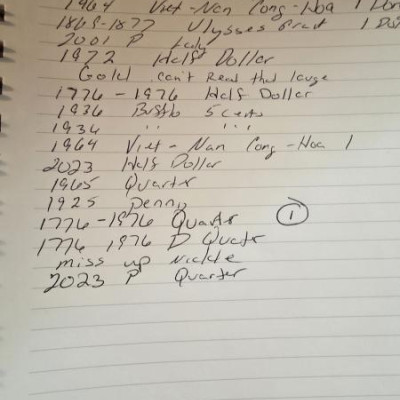 1964 Viet-Nan Cong-Hoa 1
1869-1877 Ulysses Grant 1
2001 P
1972 Half Dollar
Gold can't Read that
1776 - 1976 Half Dollar
1936 5 Cents
1934 " " " "
1964 Viet - Nan Cong - Hoa 1
2023 Half Dollar
1965 Quarter
1925 Penny
1776-1976 Quarter 1
1776 1976 D Quater
miss up Nickle
2023 P Quarter